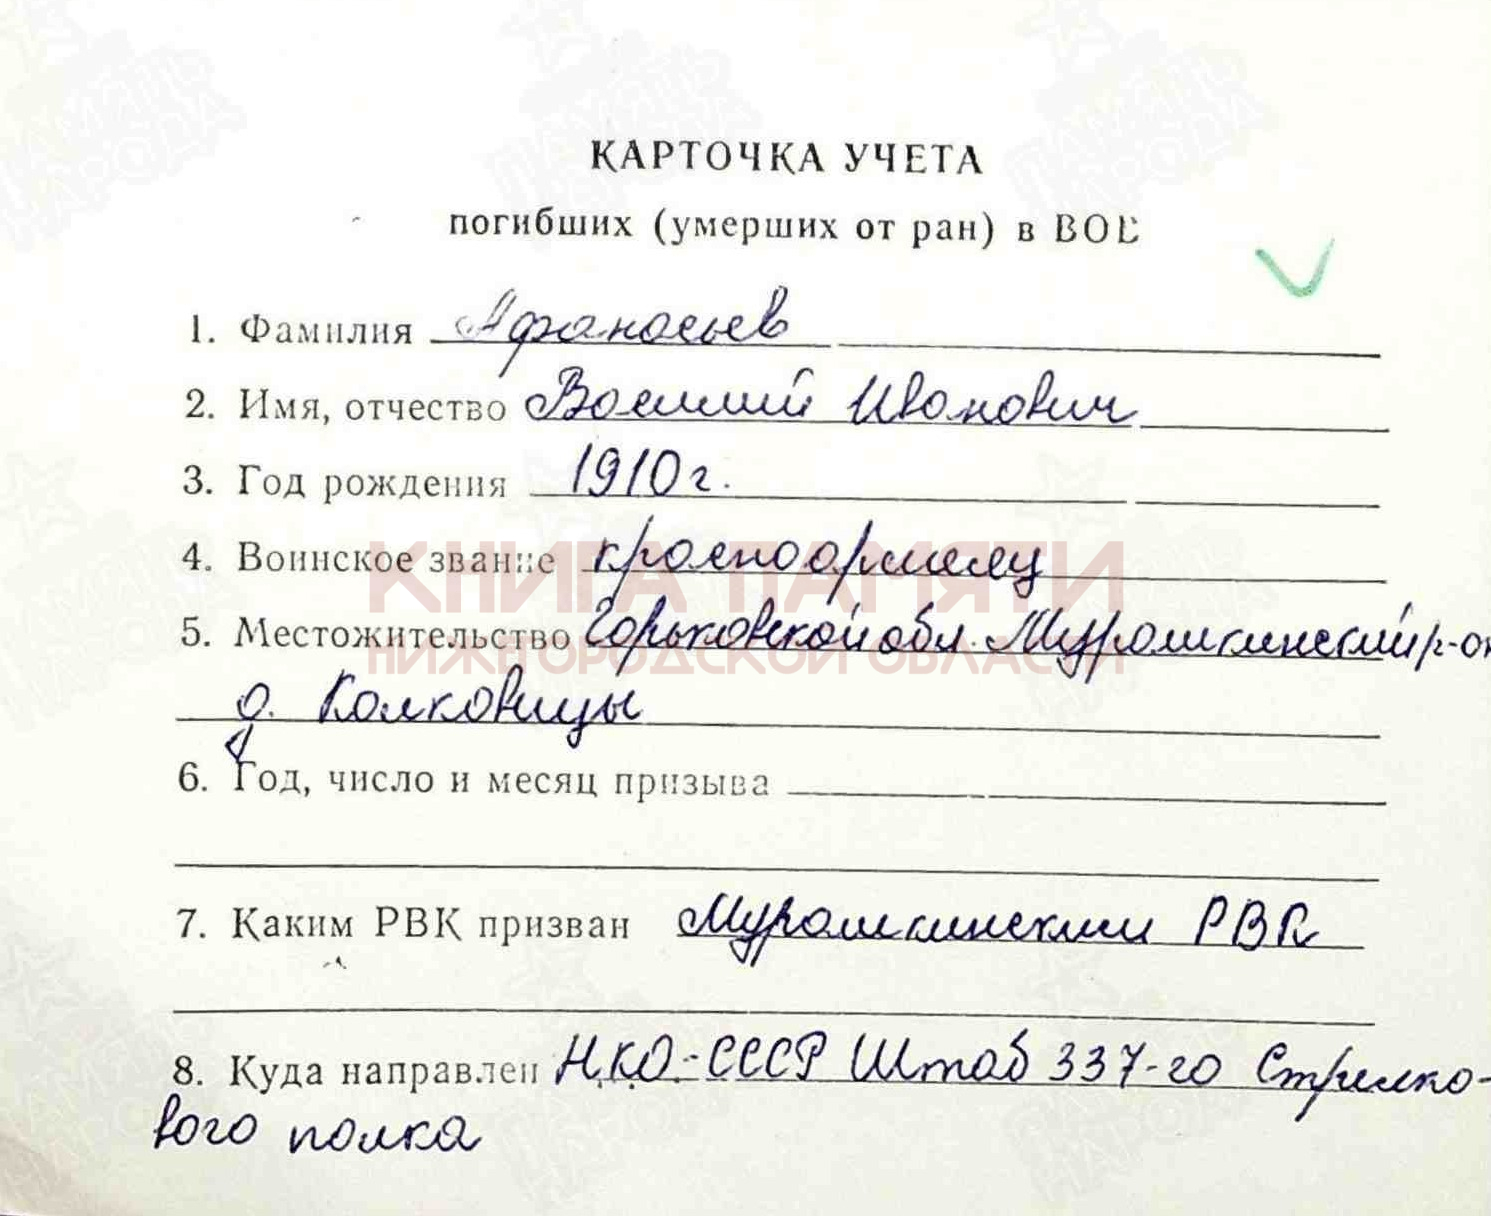 КАРТОЧКА УЧЕТА
погибших (умерших от ран) в ВОВ
1. Фамилия Афанасьев
2. Имя, отчество Василий Иванович
3. Год рождения 1910 г.
4. Воинское звание красноармеец
5. Местожительство Горьковской обл. Мурашкинский р-он
д. Колковицы
6. Год, число и месяц призыва
7. Каким РВК призван Мурашкинским РВК
8. Куда направлен НКО-СССР Штаб 337-го Стрелко-
вого полка
КНИГА ПАМЯТИ
НИЖЕГОРОДСКОЙ ОБЛАСТИ
ПАМЯТЬ НАРОДА